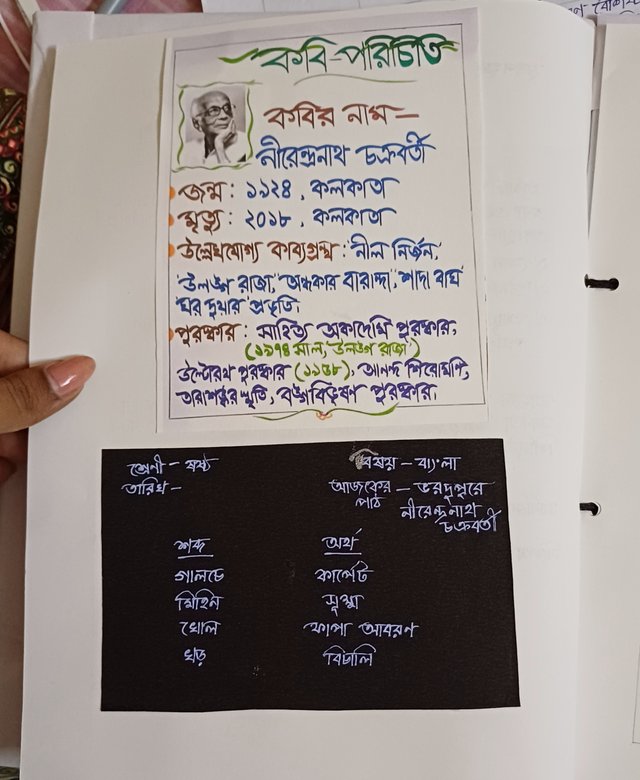 কবি-পরিচিতি
কবির নাম —
নীরেন্দ্রনাথ চক্রবর্তী
জন্ম : ১৯২৪, কলকাতা
মৃত্যু : ২০১৮, কলকাতা
উল্লেখযোগ্য কাব্যগ্রন্থ : 'নীল নির্জন',
'উলঙ্গ রাজা', 'অন্ধকার বারান্দা', 'শাদা বাঘ'
'ঘর দুয়ার' প্রভৃতি।
পুরস্কার : সাহিত্য অকাদেমি পুরস্কার,
(১৯৭৪ সাল, 'উলঙ্গ রাজা')
উল্টোরথ পুরস্কার (১৯৫৮), আনন্দ শিরোমণি,
তারাশঙ্কর স্মৃতি, বঙ্গবিভূষণ পুরস্কার।
শ্রেণী – ষষ্ঠ
বিষয় – বাংলা
তারিখ –
আজকের পাঠ – ভরদুপুরে
নীরেন্দ্রনাথ চক্রবর্তী
শব্দ অর্থ
গালচে কার্পেট
মিহিন সূক্ষ্ম
খোল ফাপা আবরণ
খড় বিচালি